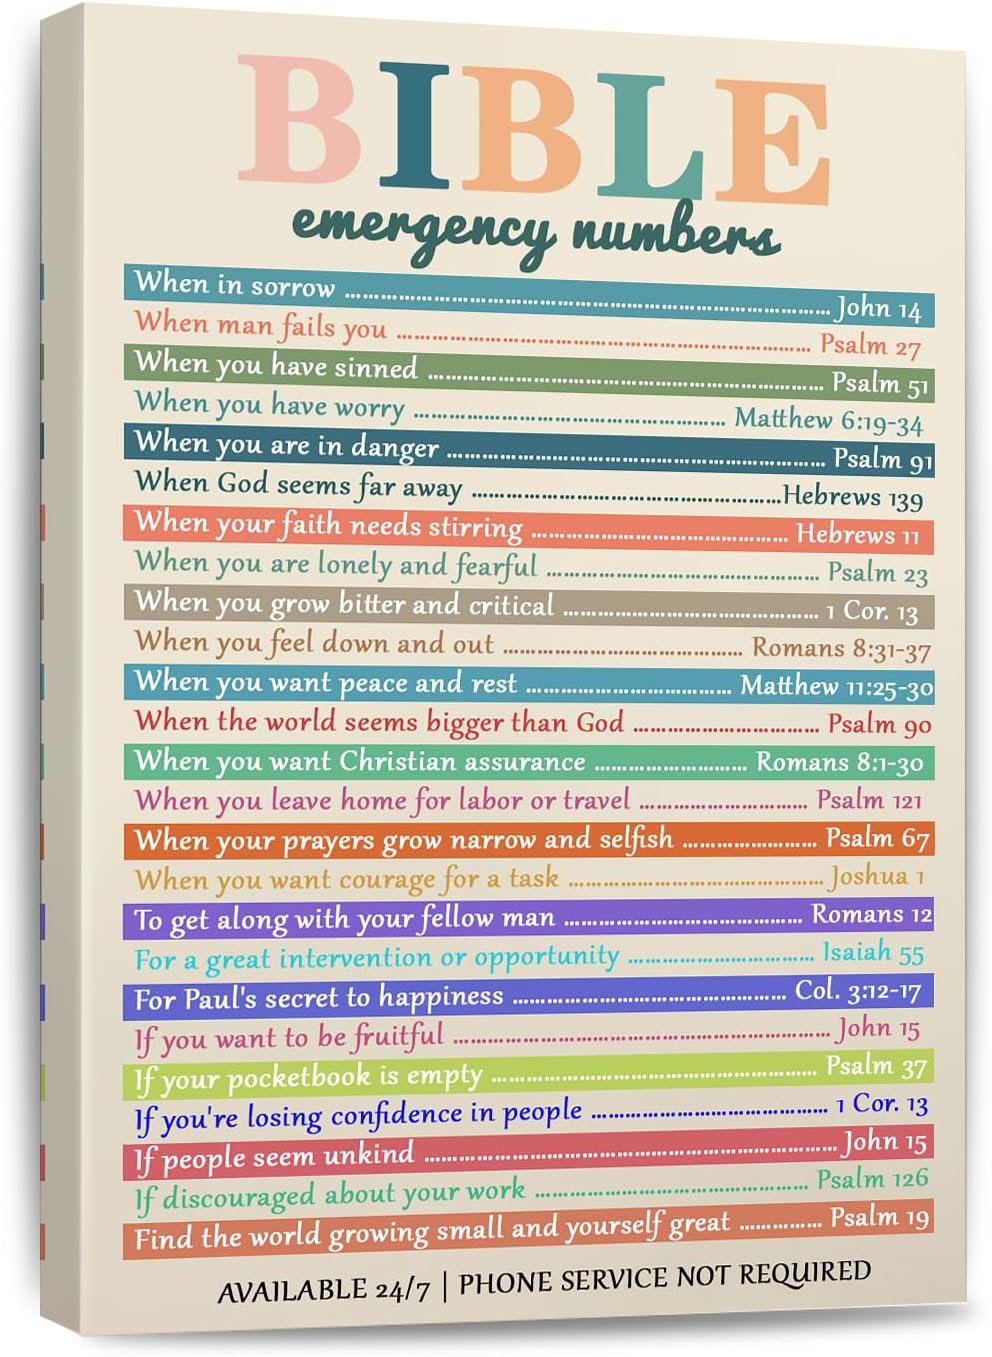 BIBLE
emergency numbers
When in sorrow ........................................................................ John 14
When man fails you ............................................................. Psalm 27
When you have sinned .......................................................... Psalm 51
When you have worry .............................................. Matthew 6:19-34
When you are in danger ....................................................... Psalm 91
When God seems far away .............................................Hebrews 139
When your faith needs stirring ...................................... Hebrews 11
When you are lonely and fearful ........................................ Psalm 23
When you grow bitter and critical ..................................... 1 Cor. 13
When you feel down and out ................................... Romans 8:31-37
When you want peace and rest .............................. Matthew 11:25-30
When the world seems bigger than God ........................... Psalm 90
When you want Christian assurance ...................... Romans 8:1-30
When you leave home for labor or travel ......................... Psalm 121
When your prayers grow narrow and selfish .................... Psalm 67
When you want courage for a task ..................................... Joshua 1
To get along with your fellow man ................................... Romans 12
For a great intervention or opportunity ........................... Isaiah 55
For Paul's secret to happiness ........................................ Col. 3:12-17
If you want to be fruitful ....................................................... John 15
If your pocketbook is empty ............................................... Psalm 37
If you're losing confidence in people .................................. 1 Cor. 13
If people seem unkind ............................................................John 15
If discouraged about your work ........................................ Psalm 126
Find the world growing small and yourself great ............ Psalm 19
AVAILABLE 24/7 | PHONE SERVICE NOT REQUIRED